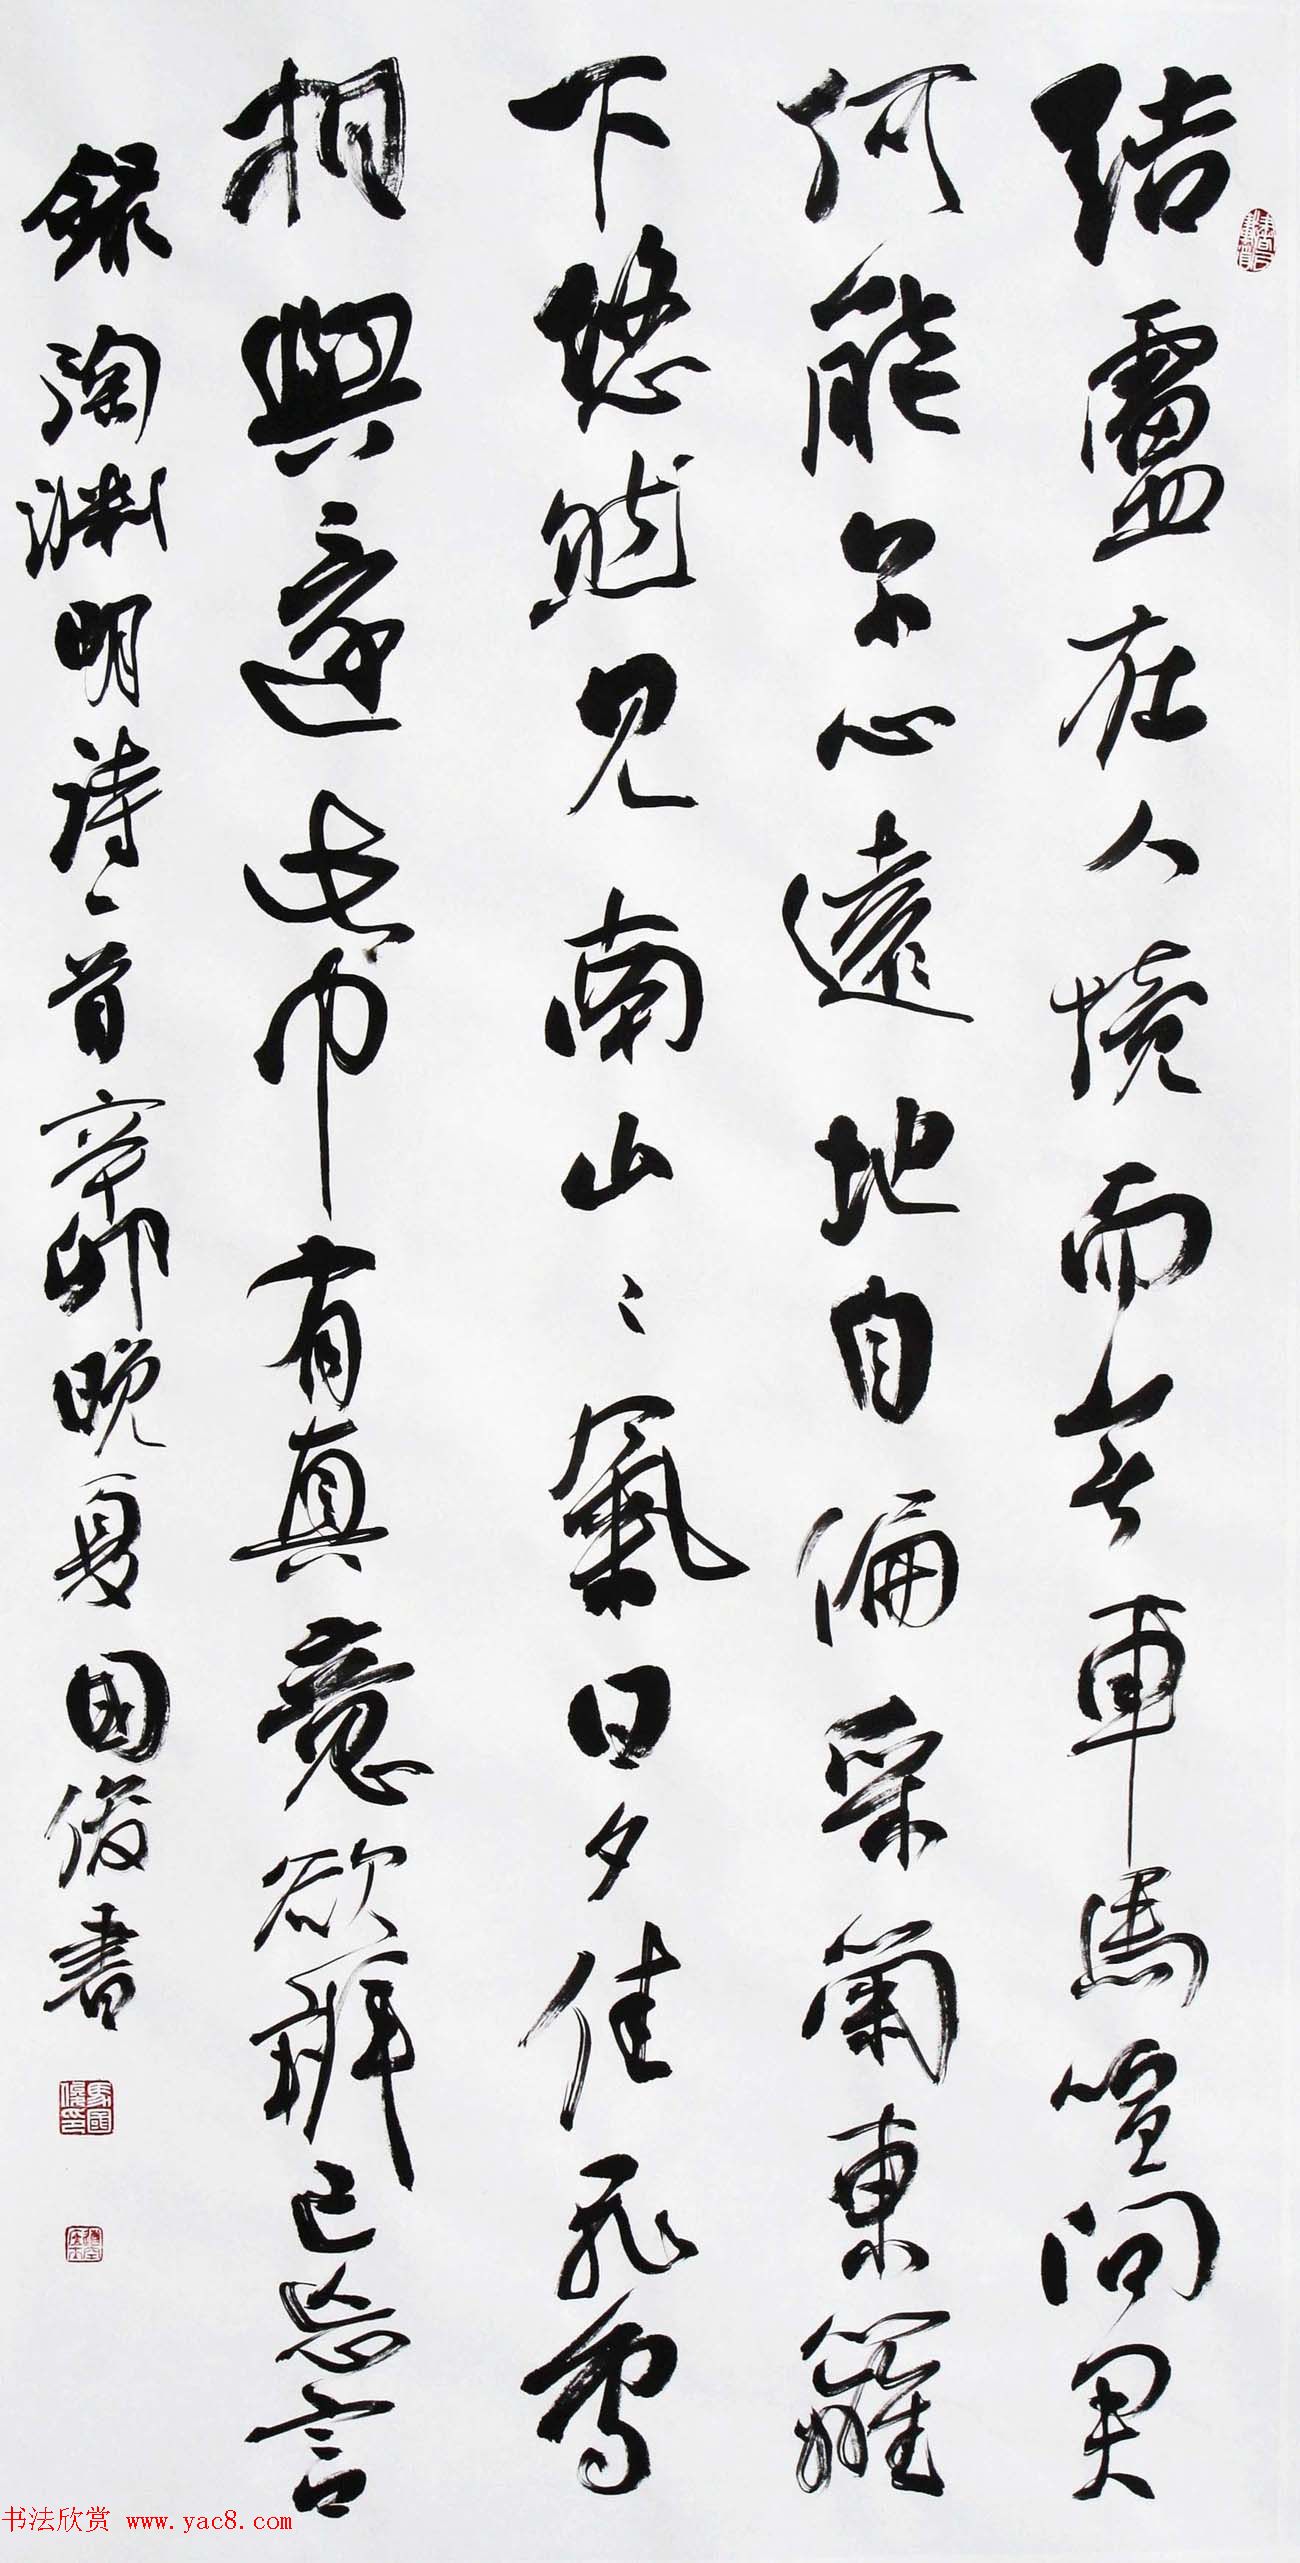 結廬在人境而無車馬喧問君
何能尔心遠地自偏采菊東籬
下悠然見南山〻氣日夕佳飛鳥
相與還此中有真意欲辨已忘言
録陶淵明詩一首辛卯晚夏國俊書
馬國俊印
书法欣赏 www.yac8.com